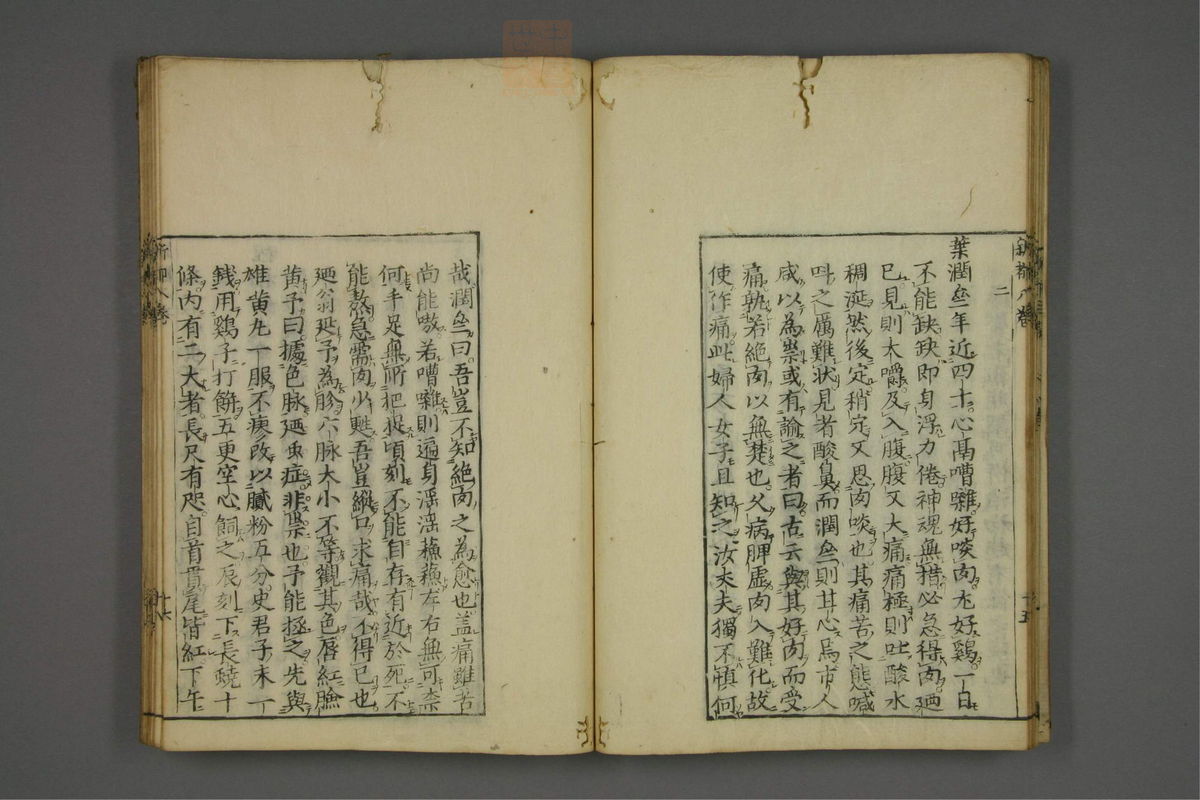 二
葉潤叁年近四十心鬲嘈雜好啖肉尤好鷄一日
不能缺缺即身浮力倦神魂無措必急得肉廼
已見則大嚼及入腹腹又大痛痛極則吐酸水
稠涎然後定稍定又思肉啖也其痛苦之態喊
叫之厲難狀見者酸鼻而潤叁則甘心焉市人
咸以為祟或有諭之者曰古云與其好肉而受
痛孰若絕肉以無楚也父病脾虛肉入難化故
使作痛此婦人女子且知之汝丈夫獨不慎何
哉潤叁曰吾豈不知絕肉之為愈也蓋痛雖苦
尚能嗷若嘈雜則遍身滛滛蘓蘓左右無可柰
何手足無所把捉頃刻不能自存有近於死不
能熬急需肉少甦吾豈縱口求痛哉不得已也
廼翁延予為胗六脉大小不等觀其色唇紅臉
黃予曰據色脉廼虫症非祟也予能拯之先與
雄黃丸一服不瘳改以膩粉五分史君子末一
錢用鷄子打餅五更空心飼之辰刻下長蟯十
條內有二大者長尺有咫自首貫尾皆紅下午
十五
十六